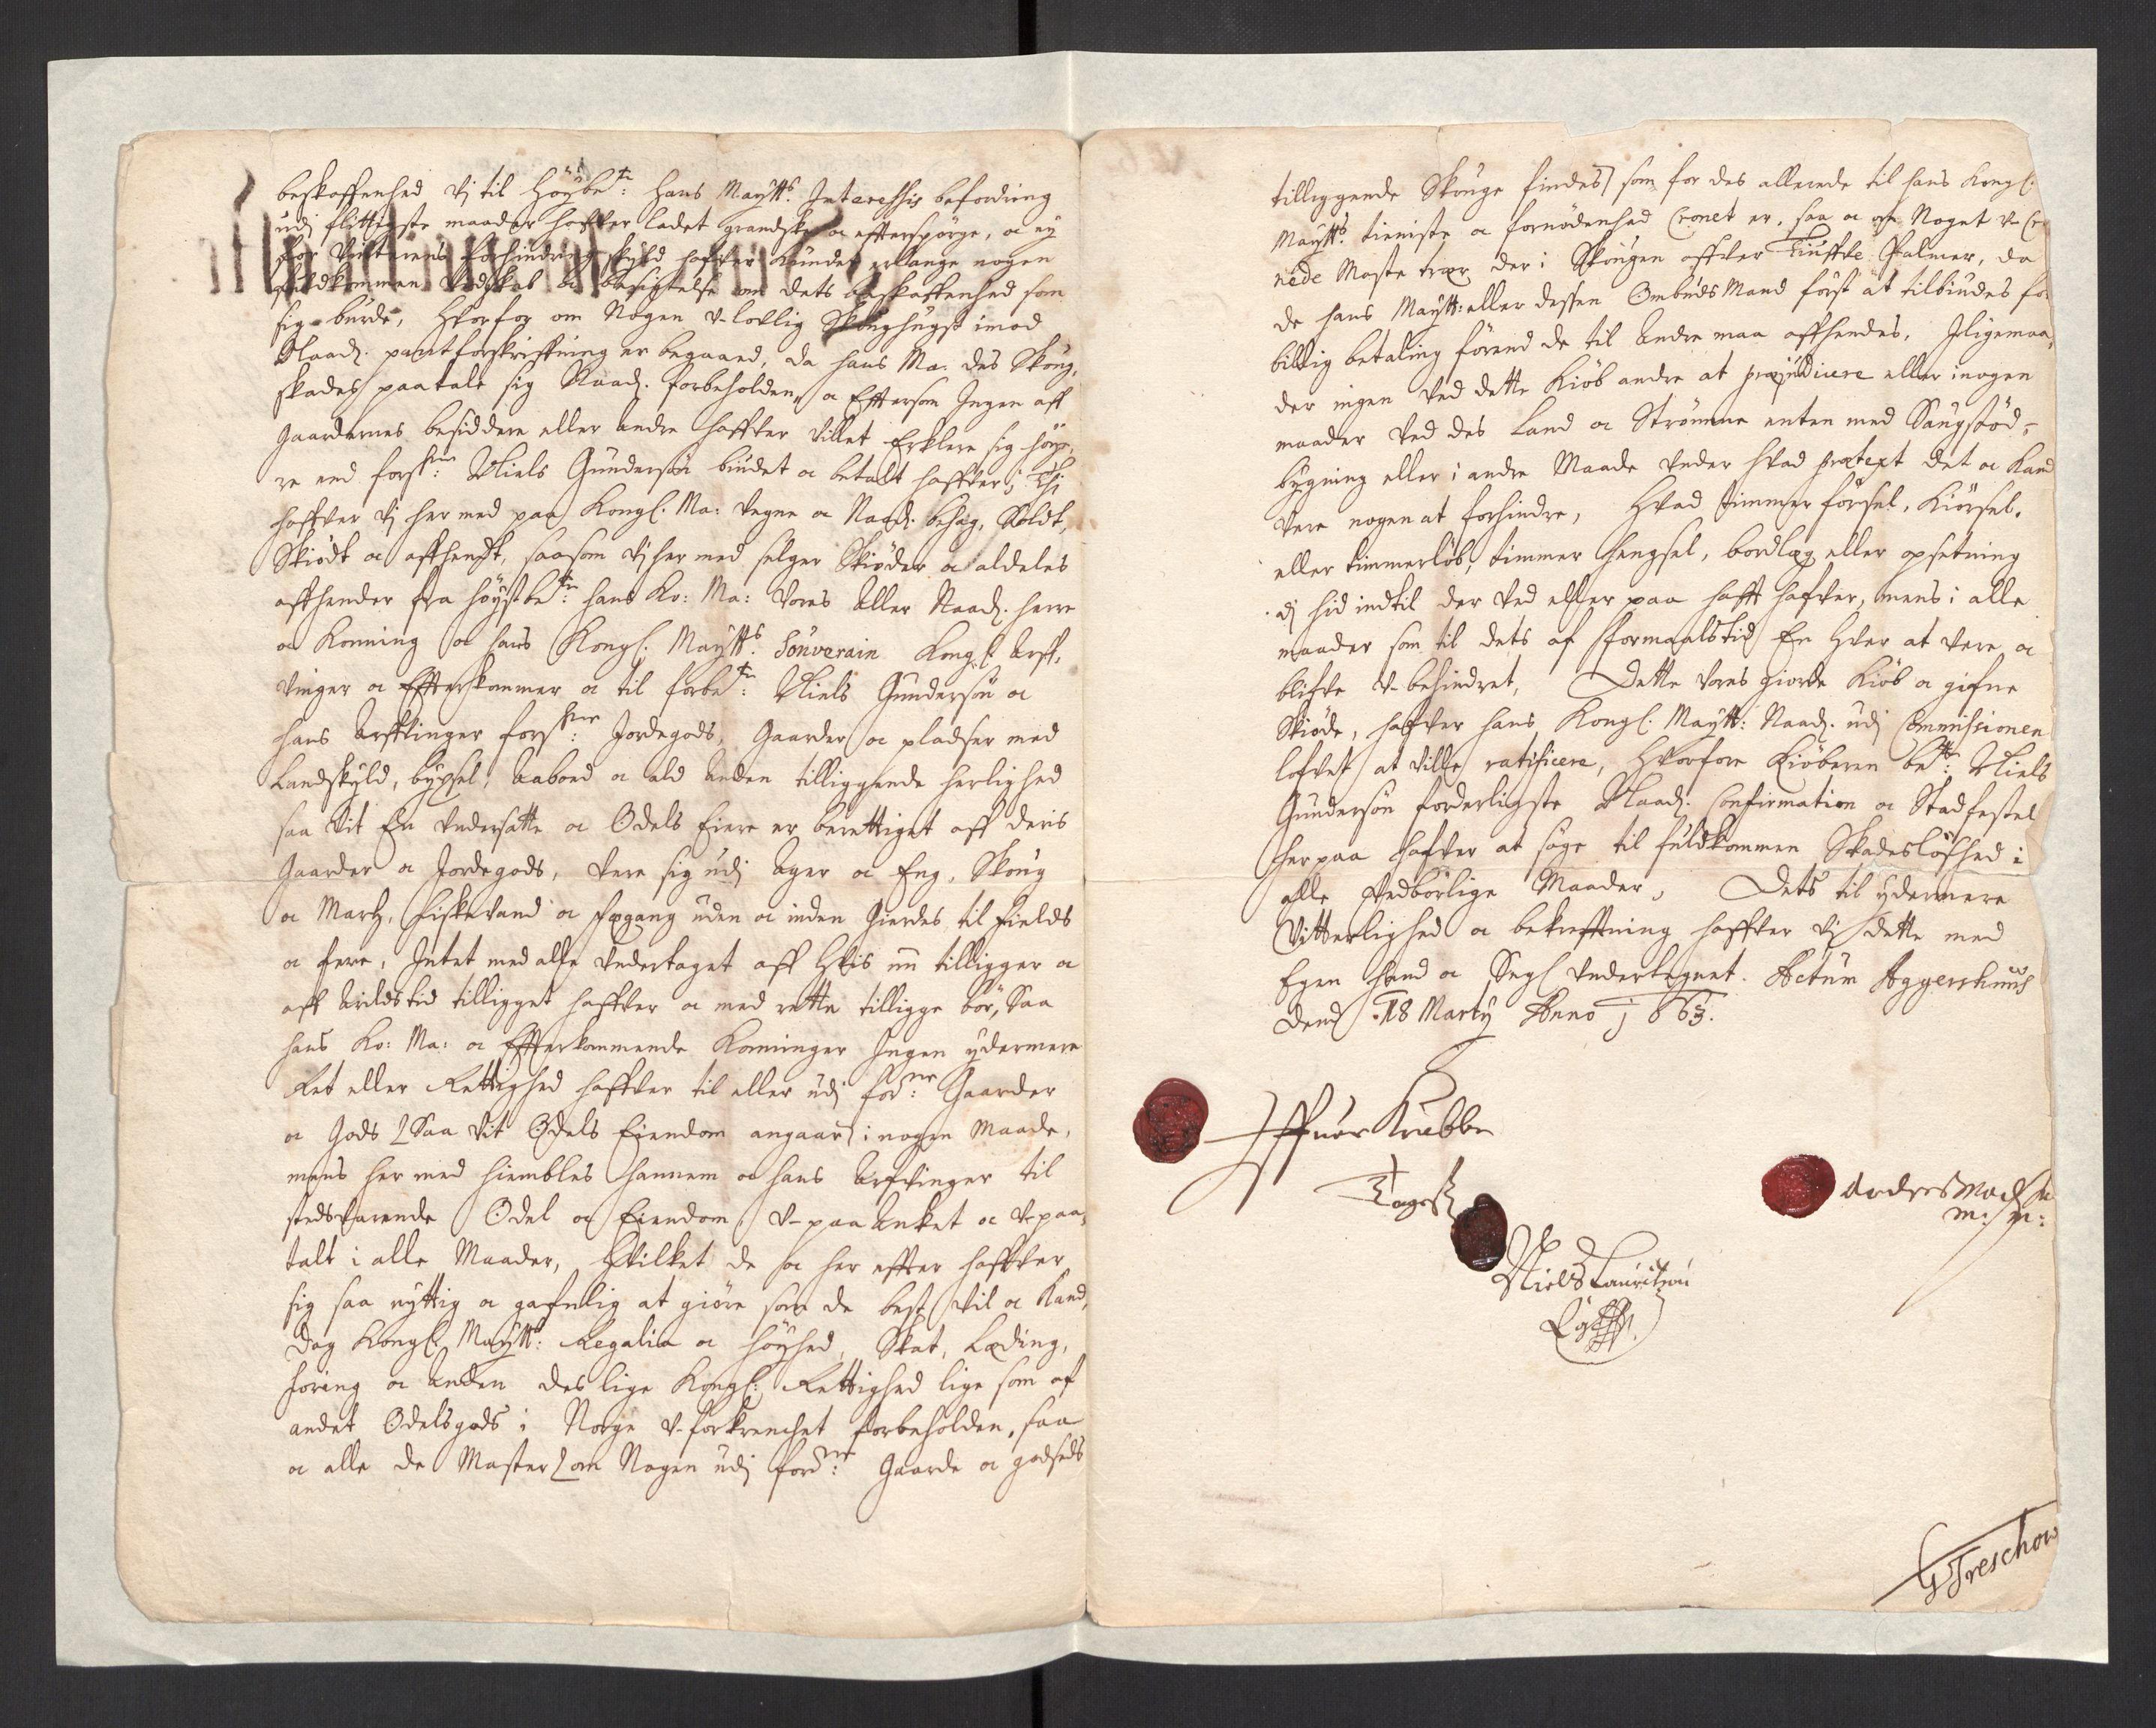 beskaffenhed Vj til Höÿbe:te Hans Maÿtts. Interessis befordring
udj flittigste maader hafver ladet grandske oc effterspörge, oc eÿ
for Vinterens forhindring skyld hafver kundet erlange nogen
fuldkommen Vidskab oc besigtelse om dets beskaffenhed som
sig burde, Hvorfor om Nogen V-lovlig Skoughugst imod
Naadj. pantforskriffning er begaaed, da hans Ma. des Skoug-
skades paatale sig Naadj. forbeholden, oc Efftersom Ingen aff
Gaardernes besiddere eller andre haffver villet Erklere sig höÿe-
re end forschr:ne Niels Gundersön buudet oc betalt haffver; Thj
haffver Vj her med paa Kongl. Ma: Vegne oc Naadj. behag, Soldt,
Skiödt oc affhendt, saasom Vj her med selger Skiöder oc aldeles
affhender fra höÿstbe:te hans Ko: Ma: Vores Aller Naadj. herre
oc Konning oc hans Kongl. Maÿtts. Souverain Kongl. Arff-
vinger oc Effterkommer oc til forbe:te Niels Gundersön oc
hans Arffvinger forsch:ne Jordegods, Gaarder oc pladser med
Landskyld, bÿxsel, Aaboed oc ald Anden tilliggende herlighed
saa Vit En Vndersatte oc Odels Eiere er berettiget aff deris
Gaarder oc Jordegods, Vere sig udj Ager oc Eng, Skoug
oc March, fiskevand oc fægang uden oc inden Gierdes til Fields
oc fere, Intet med alle Vndertaget aff Hvis nu tilligger oc
aff Arildstid tilligget haffver oc med rette tilligge bör, Saa
hans Ko: Ma: oc Effterkommende Konninger Ingen ÿdermere
Ret eller Rettighed haffver til eller udj for:ne Gaarder
oc Gods Saa Vit Odels Eiendom angaar i nogen Maade,
mens her med hiembles hannem oc hans Arfvinger til
stedsvarende Odel oc Eiendom, V-paaAnket oc V-paa-
talt i alle Maader, Hvilket de oc her effter haffver
sig saa nyttig oc gafnlig at giöre som de best Vil oc Kand,
Dog Kongl. Maÿtts: Regalia oc höÿhed, Skat, Leding,
foring oc Anden des lige Kongl: Rettighed lige som af
andet Odelsgods i Norge V-forkrenchet forbeholden, saa
oc alle de Master om Nogen udj for:ne Gaarde oc godsets
tilliggende Skouge findes som for des allerede til hans Kongl.
Maÿtts. tieniste oc fornödenhed Cronet er, saa oc om Noget V-Cro-
nede Maste træer der i Skougen offver Tiuffve Palmer, da
de hans Maÿtt: eller dessen Ombuds Mand först at tilbiudes for
billig betaling förend de til Andre maa affhendes. Iligemaa-
der ingen Ved dette Kiöb andre at præjudicere eller i nogen
maader Ved des Land oc Strömme enten med Saugstöd-
bÿgning eller i andre Maade Vnder hvad prætext det oc Kand
Vere nogen at forhindre, Hvad timmerförsel, Kiörsel,
eller timmerlöb, timmer hengsel, bordlæg eller opsetning
dj hid indtil der Ved eller paa hafft hafver, mens i alle
maader som til dets af formaalstid En Hver at Vere oc
blifve V-behindret, Dette Vores giorde Kiöb oc gifne
Skiöde, hafver hans Kongl. Maÿtt: Naadj. udj Commissionen
lofvet at Ville ratificere, Hvorfore Kiöberen be:te Niels
Gundersön forderligste Naadj. Confirmation oc Stadfestelse
her paa hafver at söge til fuldkommen Skadeslöshed i
alle Vedbörlige Maader, Dets til ÿdermere
Vitterlighed oc bekrefftning haffver Vj dette med
Egen hand oc Segl Vndertegnet. Actum Aggershuus
Dend 18 Martÿ Anno 1663.
Iffuer Krabbe
Tagesß
Anders Madsen
m: p:
Niels Lauritzøn
GTreschow